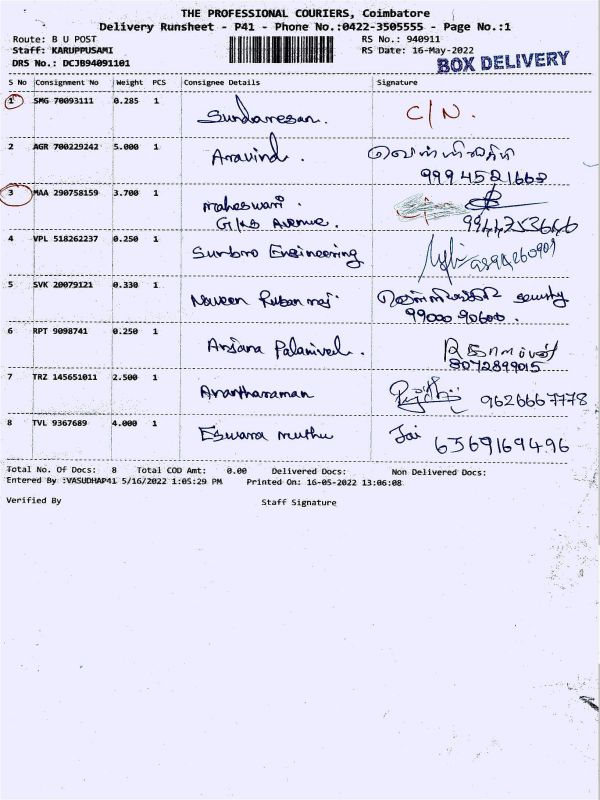 THE PROFESSIONAL COURIERS, Coimbatore
Delivery Runsheet - P41 - Phone No.:0422-3505555 - Page No.:1
Route: B U POST RS No.: 940911
Staff: KARUPPUSAMI RS Date: 16-May-2022
DRS No.: DCJB94091101 BOX DELIVERY
S No Consignment No Weight PCS Consignee Details Signature
1 SMG 70093111 0.285 1 Sundaresan. C/N.
2 AGR 700229242 5.000 1 Aravind.
9994521668
3 MAA 290758159 3.700 1 maheswari.
Avenue. 9944253646
4 VPL 518262237 0.250 1 Sunbro Engineering
5 SVK 20079121 0.330 1 Naveen security
99000 90600.
6 RPT 9098741 0.250 1 Anjana Palanivel.
8072899015
7 TRZ 145651011 2.500 1 Anantharaman 9626667778
8 TVL 9367689 4.000 1 Eswara muthu Jai 6369169496
Total No. Of Docs: 8 Total COD Amt: 0.00 Delivered Docs: Non Delivered Docs:
Entered By :VASUDHAP41 5/16/2022 1:05:29 PM Printed On: 16-05-2022 13:06:08
Verified By Staff Signature